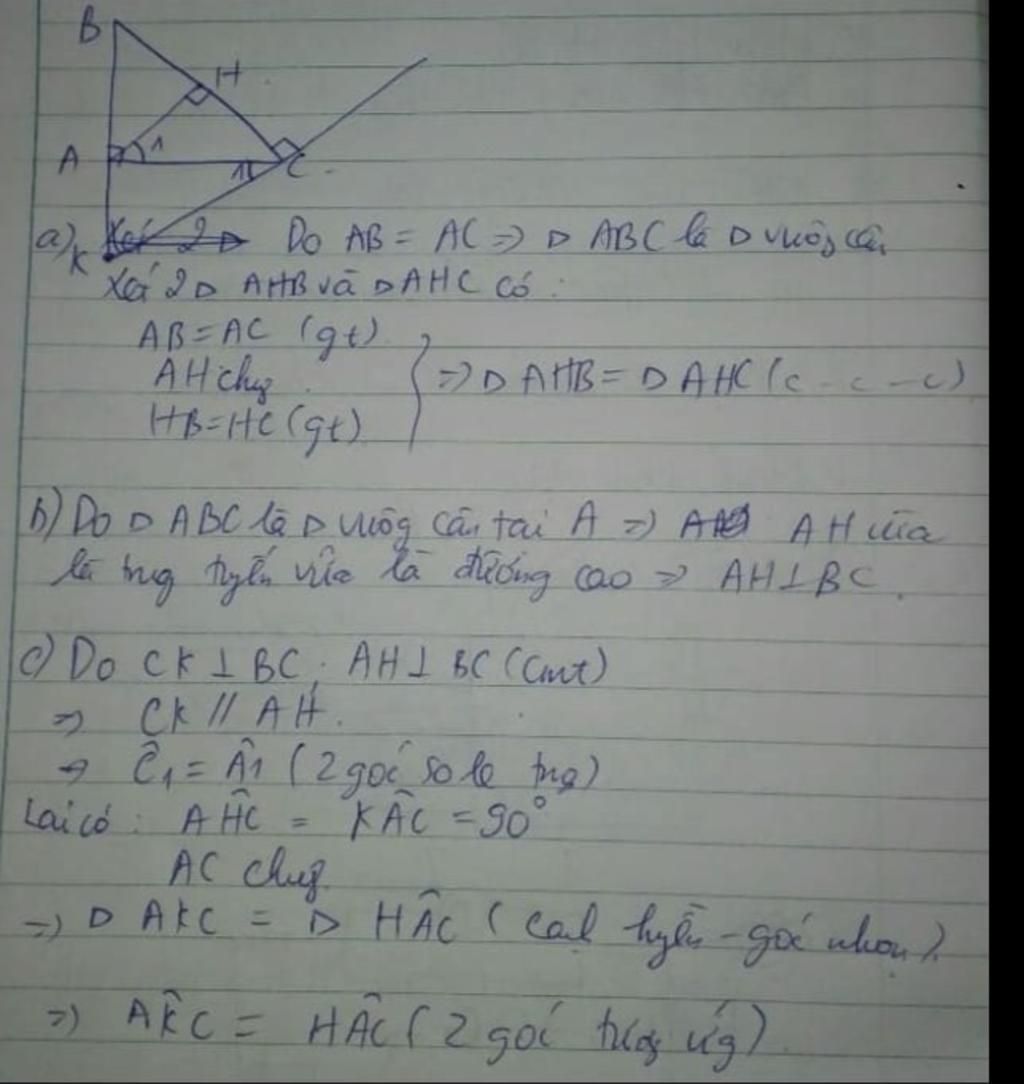 B
H
A 1
1 C
K
a) Do AB = AC => Δ ABC là Δ vuông cân
Xét 2 Δ AHB và Δ AHC có :
AB = AC (gt)
AH chug
HB = HC (gt)
=> Δ AHB = Δ AHC (c - c - c)
b) Do Δ ABC là Δ vuôg cân tại A => AH vừa
là trug tuyến vừa là đường cao => AH ⊥ BC.
c) Do CK ⊥ BC ; AH ⊥ BC (cmt)
=> CK // AH.
=> Ĉ1 = Â1 (2 góc so le trg)
Lại có : AĤC = KÂC = 90°
AC chug
=> Δ AKC = Δ HÂC (cạh huyền - góc nhọn).
=> AK̂C = HÂC (2 góc tươg ứg)